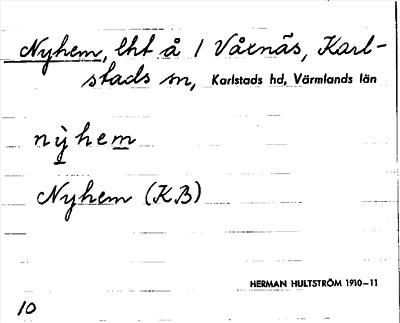 Nyhem, lht å 1 Våxnäs, Karl-
stads sn, Karlstads hd, Värmlands län
nỳhem
Nyhem (K.B)
HERMAN HULTSTRÖM 1910–11
10